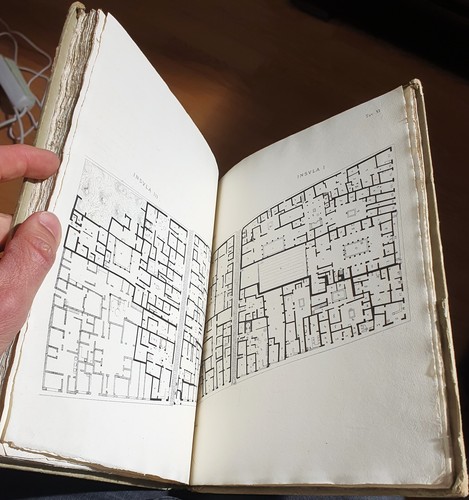 INSVLA II
INSVLA I
Tav. XI